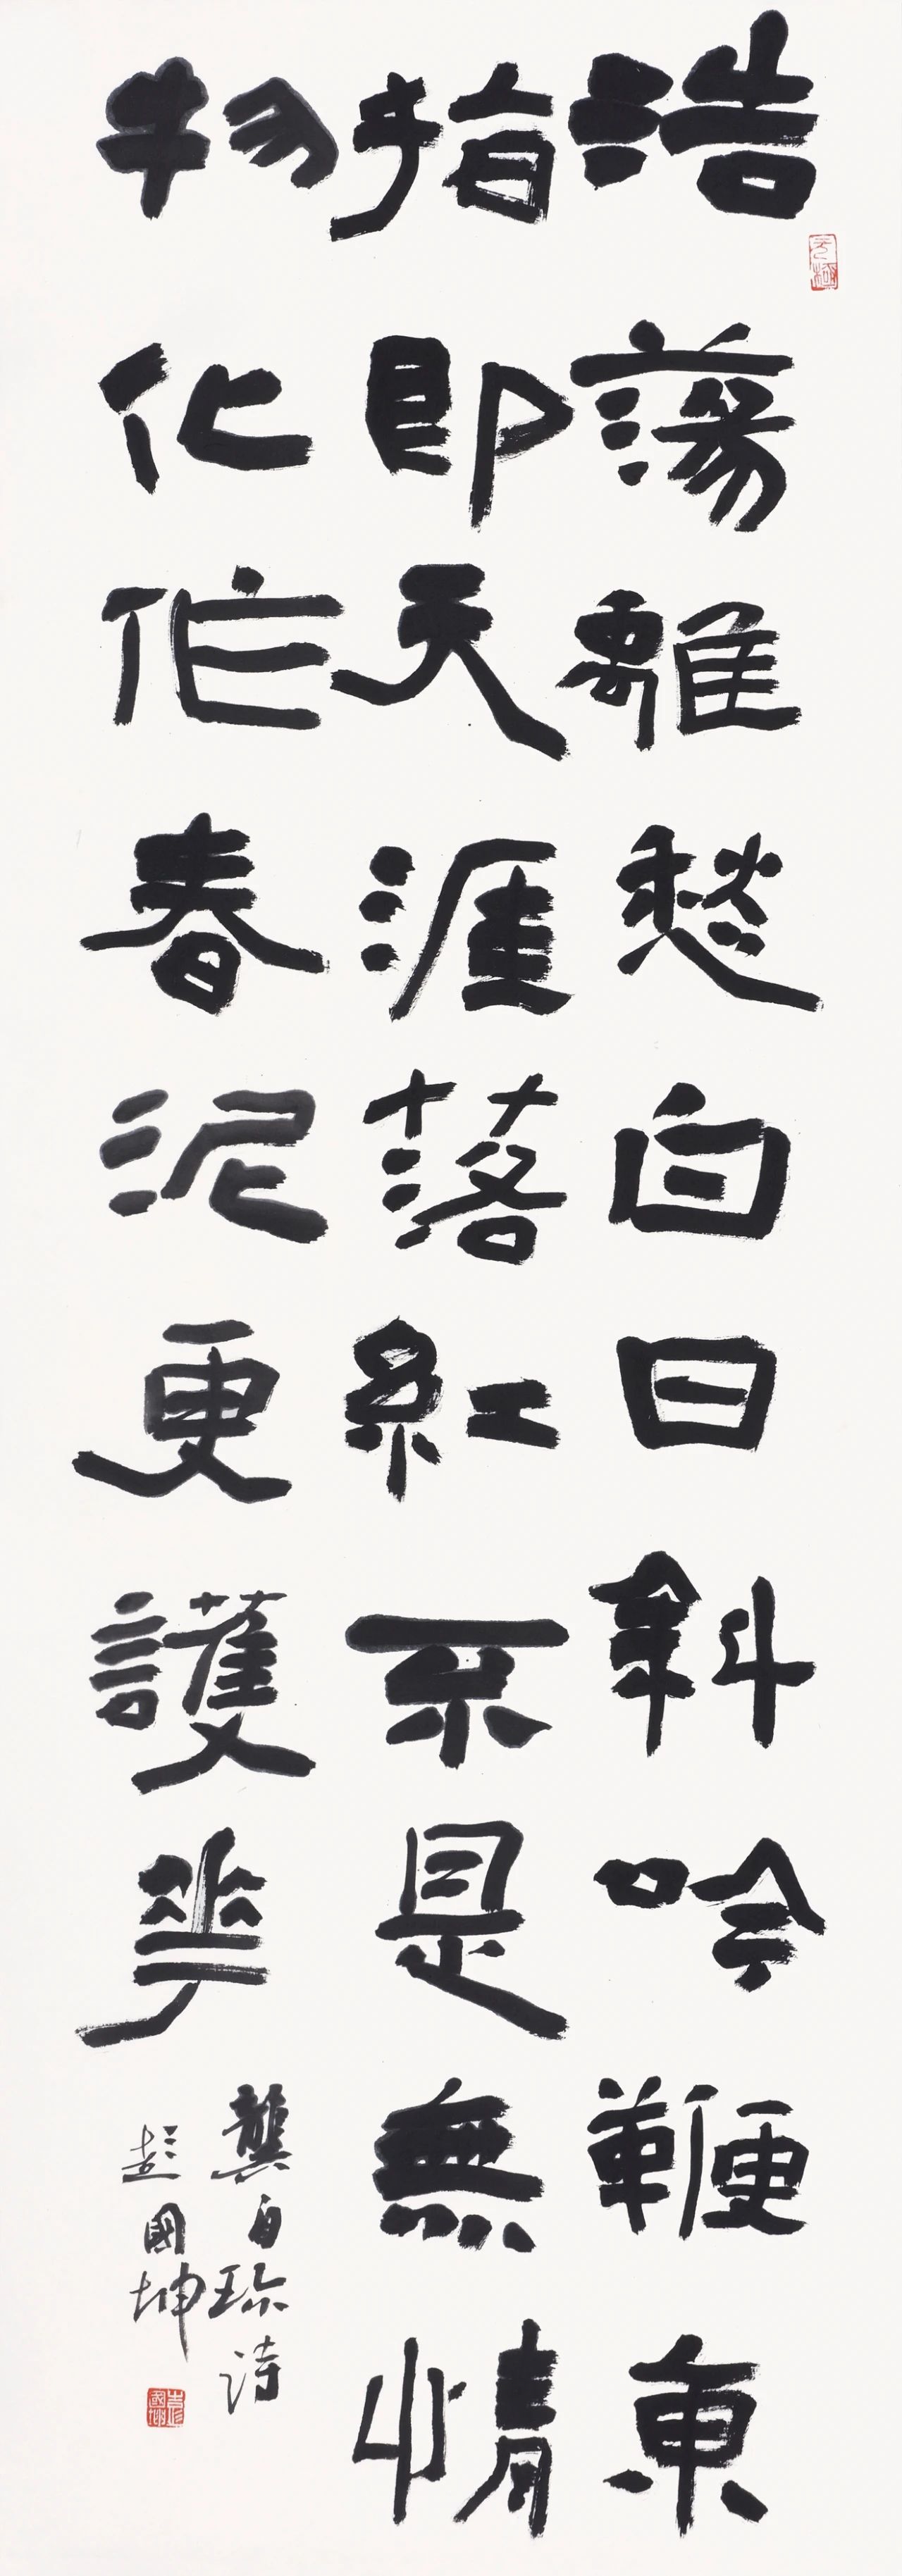 浩蕩離愁白日斜吟鞭東
指即天涯落紅不是無情
物化作春泥更護花
龔自珍詩
彭國坤